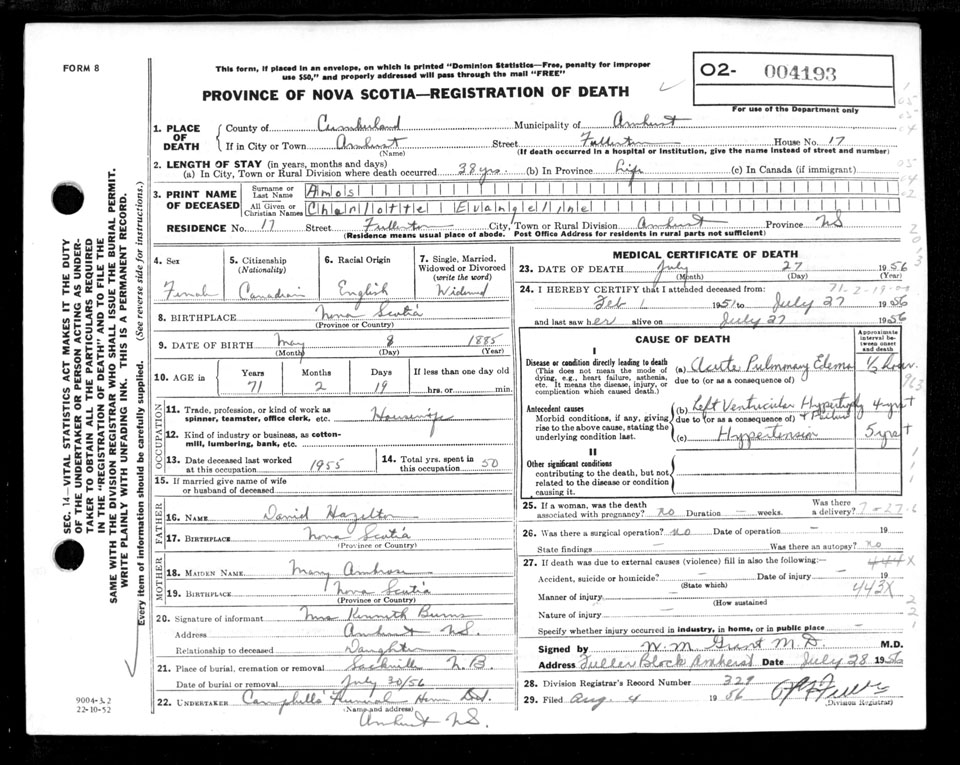 FORM 8
This form, if placed in an envelope, on which is printed "Dominion Statistics—Free, penalty for improper
use $50," and properly addressed will pass through the mail "FREE"
O2- 004193
For use of the Department only
PROVINCE OF NOVA SCOTIA—REGISTRATION OF DEATH
1. PLACE OF DEATH
County of Cumberland Municipality of Amherst
If in City or Town Amherst Street Fullerton House No. 17
(Name) (If death occurred in a hospital or institution, give the name instead of street and number)
2. LENGTH OF STAY (in years, months and days)
(a) In City, Town or Rural Division where death occurred 38 yrs. (b) In Province Life (c) In Canada (if immigrant)
3. PRINT NAME OF DECEASED
Surname or Last Name Amos
All Given or Christian Names Charlotte Evangeline
RESIDENCE No. 17 Street Fullerton City, Town or Rural Division Amherst Province NS
(Residence means usual place of abode. Post Office Address for residents in rural parts not sufficient)
4. Sex
Female
5. Citizenship (Nationality)
Canadian
6. Racial Origin
English
7. Single, Married, Widowed or Divorced (write the word)
Widowed
8. BIRTHPLACE Nova Scotia
(Province or Country)
9. DATE OF BIRTH May 8 1885
(Month) (Day) (Year)
10. AGE in Years Months Days If less than one day old
71 2 19 hrs. or min.
OCCUPATION
11. Trade, profession, or kind of work as spinner, teamster, office clerk, etc. Housewife
12. Kind of industry or business, as cotton-mill, lumbering, bank, etc.
13. Date deceased last worked at this occupation 1955
14. Total yrs. spent in this occupation 50
15. If married give name of wife or husband of deceased
FATHER
16. NAME David Hazelton
17. BIRTHPLACE Nova Scotia
(Province or Country)
MOTHER
18. MAIDEN NAME Mary Ambrose
19. BIRTHPLACE Nova Scotia
(Province or Country)
20. Signature of informant Mrs Kenneth Burns
Address Amherst NS.
Relationship to deceased Daughter
21. Place of burial, cremation or removal Sackville N.B.
Date of burial or removal July 30/56
22. UNDERTAKER Campbells Funeral Home Ltd.
(Name and address)
Amherst NS.
MEDICAL CERTIFICATE OF DEATH
23. DATE OF DEATH July 27 1956
(Month) (Day) (Year)
24. I HEREBY CERTIFY that I attended deceased from: 71-2-19-00
Feb 1 1951 to July 27 1956
and last saw her alive on July 27 1956
CAUSE OF DEATH
Approximate interval between onset and death
I
Disease or condition directly leading to death
(This does not mean the mode of dying, e.g., heart failure, asthenia, etc. It means the disease, injury, or complication which caused death.)
(a) Acute Pulmonary Edema 1/2 hour
due to (or as a consequence of)
Antecedent causes
Morbid conditions, if any, giving rise to the above cause, stating the underlying condition last.
(b) Left Ventricular Hypertrophy + Failure 4 yrs +
due to (or as a consequence of)
(c) Hypertension 5 yrs +
II
Other significant conditions
contributing to the death, but not related to the disease or condition causing it.
25. If a woman, was the death associated with pregnancy? no Duration — weeks. Was there a delivery? 7-27-6
26. Was there a surgical operation? no Date of operation — 19
State findings — Was there an autopsy? no
27. If death was due to external causes (violence) fill in also the following: 444X
Accident, suicide or homicide? — Date of injury — 19
(State which) 443X
Manner of injury —
(How sustained)
Nature of injury —
Specify whether injury occurred in industry, in home, or in public place —
Signed by W. M. Grant M.D. M.D.
Address Fuller Block Amherst Date July 28 1956
28. Division Registrar's Record Number 329
29. Filed Aug. 4 1956
(Division Registrar)
SEC. 14—VITAL STATISTICS ACT MAKES IT THE DUTY
OF THE UNDERTAKER OR PERSON ACTING AS UNDER-
TAKER TO OBTAIN ALL THE PARTICULARS REQUIRED
IN THE "REGISTRATION OF DEATH" AND TO FILE THE
SAME WITH THE DIVISION REGISTRAR WHO SHALL ISSUE THE BURIAL PERMIT.
WRITE PLAINLY WITH UNFADING INK. THIS IS A PERMANENT RECORD.
Every item of information should be carefully supplied. (See reverse side for instructions.)
9004-3.2
22-10-52